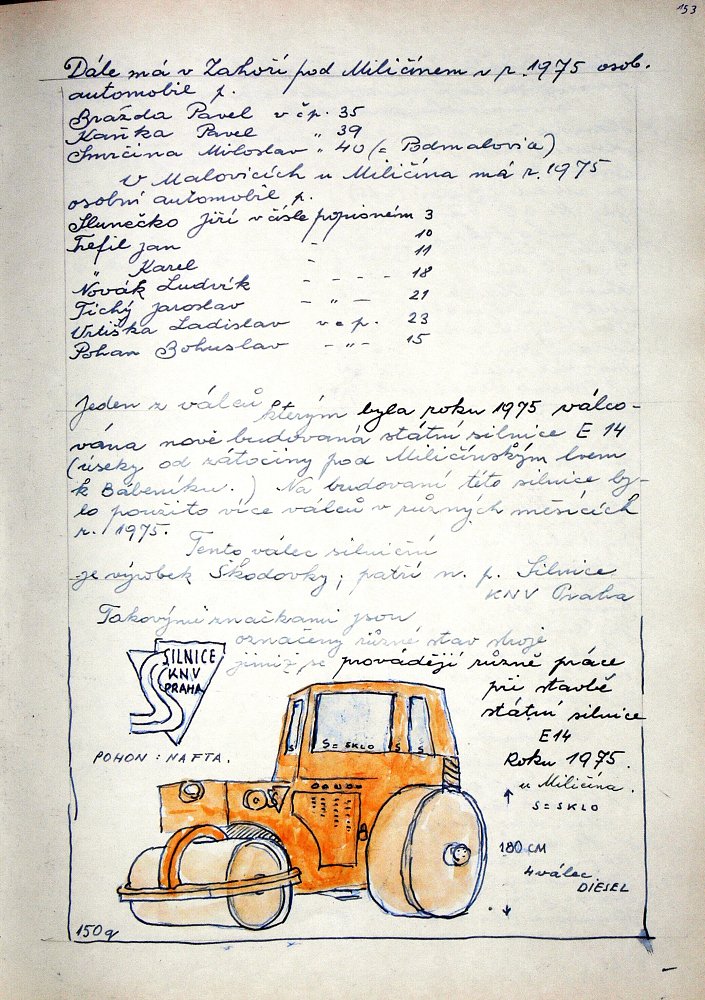 153
Dále má v Zahoří pod Miličínem v r. 1975 osob.
automobil p.
Brázda Pavel v čp. 35
Kaňka Pavel " 39
Smrčina Miloslav " 40 (= Podmalovia)
V Malovicích u Miličína má r. 1975
osobní automobil p.
Slunečko Jiří v čísle popisném 3
Trefil Jan - 10
" Karel - 11
Novák Ludvík - - - - 18
Tichý Jaroslav - " - 21
Vrtiška Ladislav v č p. 23
Pohan Bohuslav - " - 15
Jeden z válců kterým byla roku 1975 válco-
vána nově budovaná státní silnice E 14
(úseky od zátočiny pod Miličínským lvem
k Bábeníku.) Na budovaní této silnice by-
lo použito více válců v různých měsících
r. 1975.
Tento válec silniční
je výrobek Škodovky; patří n. p. Silnice
KNV Praha
Takovými značkami jsou
označeny různé stav stroje
jimiž se provádějí různě práce
při stavbě
státní silnice
E14
Roku 1975.
u Miličína.
SILNICE
KNV
PRAHA
POHON: NAFTA.
S = SKLO
S S = SKLO S S
180 CM
4 válec
DIESEL
150 q